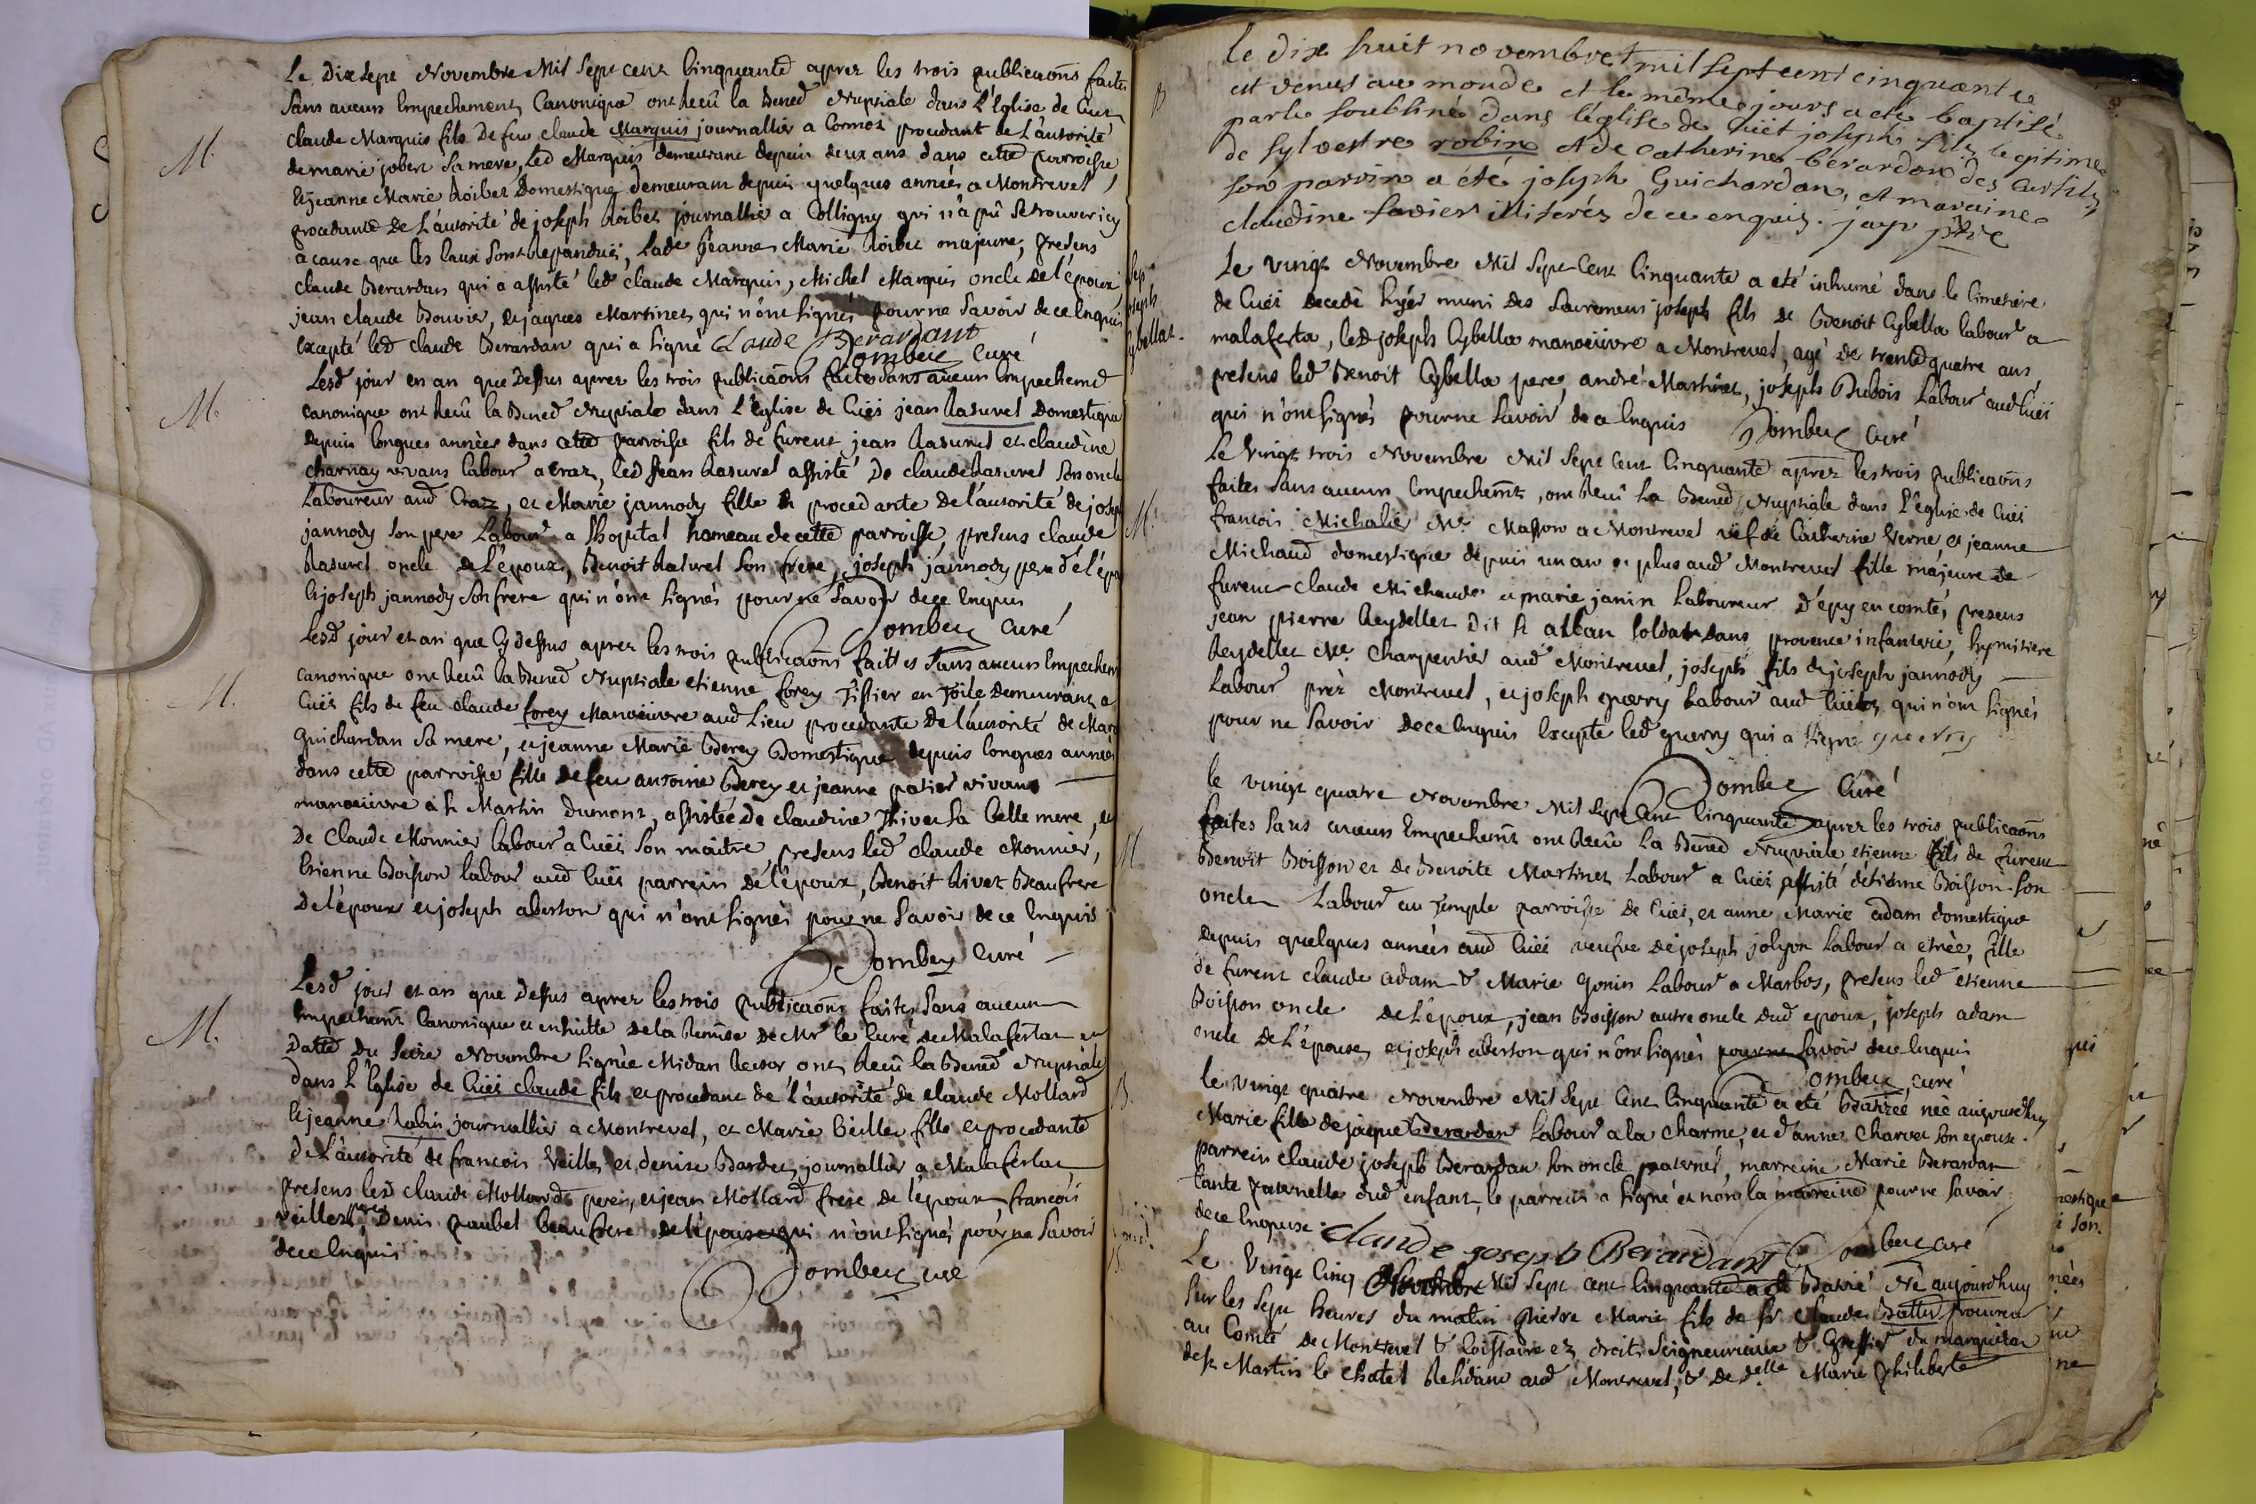 Le Dix sept Novembre Mil Sept cent Cinquante aprez les trois publicaõns faites
Sans aucun Empechement Canonique ont Reçû la Bened Nuptiale dans L'Eglise de Cuet
M. claude Marquis fils De feu claude Marquis journallier a Cormoz procedant de L'autorité
de marie jobert Sa mere, led Marquis demeurant depuis deux ans dans cette parroisse
et jeanne Marie Roibet Domestique demeurant depuis quelques années a Montrevel,
procedante De L'autorité de joseph Roibet journallier a Colligny qui n'a pû se trouver icy
a cause que les Eaux Sont Repandües, Lade jeanne Marie Roibet majeure, presens
claude Berardan qui a assisté led claude Marquis, Michel Marquis oncle de l'époux
jean claude Bouvier, et jacques Martinet qui n'ont signés pour ne Savoir de ce Enquis
Excepté led claude Berardan qui a signé Claude Berardant
Dombey Curé
Lesd jour et an que Dessus aprez les trois publicaõns faites sans aucun Empechemt
M. canonique ont Reçû la Bened Nuptiale dans L'Eglise de Cuët jean Rasurel Domestique
Depuis longues années dans cette parroisse fils de furent jean Rasurel et claudine
charnay vivans labour a Craz, led jean Rasurel assisté De claude Rasurel Son oncle
Laboureur aud Craz, et Marie jannody fille et procedante de l'autorité de joseph
jannody son pere Labour a L'hopital hameau de cette parroisse, presens claude
Rasurel oncle de l'époux, Benoit Rasurel Son frere, joseph jannody pere de l'ép
et joseph jannody Son frere qui n'ont Signés pour ne Savoir de ce Enquis
Dombey curé
Lesd jour et an que Cy dessus aprez les trois publicaõns faittes Sans aucun Empechem
M. canonique ont Reçû la Bened Nuptiale etienne forey Tissier en Toile demeurant a
Cuët fils de feu claude forey Manoeüvre aud Lieu procedante De l'autorité de Marie
Guichardan Sa mere, et jeanne Marie Berey Domestique depuis longues années
dans cette parroisse fille de feu antoine Berey et jeanne patier vivans
manoeüvre a St Martin Dumont, assistée De claudine Thivet Sa belle mere, et
De Claude Monnier labour a Cuët Son maitre, presens led claude Monnier,
Etienne Boisson labour aud Cuët parrein de l'époux, Benoit Rivet Beaufrere
De l'époux et joseph aberton qui n'ont Signés pour ne Savoir de ce Enquis
Dombey curé
Lesd jour et an que Dessus aprez les trois publicaõns faites Sans aucun
M. Empechemt Canonique et ensuitte de la Remise de Mr le Curé de Malafertaz en
Datte du Seize Novembre Signée Midan Recteur ont Reçû la Bened Nuptiale
dans L'Eglise de Cuët claude fils et procedant de l'autorité de claude Mollard
et jeanne Robin journallier a Montrevel, et Marie Veille fille et procedante
de l'autorité de francois Veille et denise Bardet journallier a Malafertaz
presens led claude Mollard pere, et jean Mollard frere de l'époux francois
veille pere, Denis paubel beaufrere de l'épouse qui n'ont Signés pour ne Savoir
de ce Enquis
Dombey curé
le dix huit novembre mil sept cent cinquante
B est venus au monde et le même jours a été baptisé
par le soubsiné dans l'église de Cuët joseph fils légitime
de Sylvestre robin et de Catherine berardan des Curtils,
son parrin a été joseph Guichardan, et maraine
claudine favier illiterés de ce enquis. jayr ptre
Le vingt Novembre Mil Sept Cent Cinquante a été inhumé dans le Cimetiére
Sep joseph Cybellaz de Cuët decedé hyér muni des Sacremens joseph fils de Benoit Cybella labour a
malaferta, led joseph Cybella manoeüvre a Montrevel, agé de trente quatre ans
presens led Benoit Cybella pere, andré Martinet, joseph Dubois Labour aud Cuët
qui n'ont signés pour ne Savoir de ce Enquis Dombey Curé
Le vingt trois Novembre Mil Sept Cent Cinquante aprez les trois publicaõns
faites Sans aucun Empechemt, ont Reçû La Bened Nuptiale dans l'Eglise de Cuët
M. francois Michalet Me Masson a Montrevel vef de Catherine Verne et jeanne
Michaud domestique depuis un an et plus aud Montrevel fille majeure de
furent Claude Michaud et marie janin Laboureur d'épy en comté, presens
jean pierre Reydellet Dit St alban Soldat dans provence infanterie, hymitiere
Reydellet Me charpentier aud Montrevel, joseph fils de joseph jannody
Labour prez Montrevel, et joseph guerry Labour aud Cuët, qui n'ont Signés
pour ne Savoir de ce Enquis Excepte led guerry qui a Signé guerry
Dombey Curé
le vingt quatre Novembre Mil Sept Cent Cinquante aprez les trois publicaõns
faites Sans aucun Empechemt ont Reçû La Bened Nuptiale etienne fils de furent
M Benoit Boisson et de Benoite Martinet Labour a Cuët assisté d'étienne Boisson Son
oncle Labour au Temple parroisse de Cuët, et anne Marie adam domestique
depuis quelques années aud Cuët veufve de joseph jolyon Labour a etrée, fille
de furent claude adam & Marie gonin Labour a Marbos, presens led etienne
Boisson oncle de l'époux, jean Boisson autre oncle dud epoux, joseph adam
oncle de L'épouse, et joseph aberton qui n'ont Signés pour ne Savoir de ce Enquis
Dombey, curé
B. le vingt quatre Novembre Mil Sept Cent Cinquante a été Batizée née aujourdhuy
Marie fille de jaque Berardan Labour a la charme, et d'anne Charvet Son epouse.
parrein claude joseph Berardan Son oncle paternel, marreine Marie Berardan
tante paternelle dud enfant, le parrein a Signé et non la marreine pour ne Savoir
de ce Enquise. Claude joseph Berardant Dombey curé
B Le Vingt Cinq Novembre Mil Sept cent Cinquante a eté Batizé Né aujourdhuy
Sur les Sept heures du matin pierre Marie fils de Sr Claude Battu procureur
au Comté de Montrevel & Commissaire ez droits Seigneuriaux & Greffier du marquisat
de St Martin le Chatel Résidant aud Montrevel, & de delle Marie philiberte